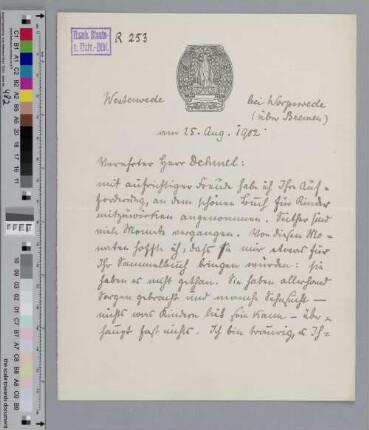 Hamb. Staats-
u. Univ.-Bibl.
R 253
Westerwede
bei Worpswede
(über Bremen)
am 25. Aug. 1902
Verehrter Herr Dehmel:
mit aufrichtiger Freude hab ich Ihre Auf-
forderung, an dem schönen Buch für Kinder
mitzuwirken angenommen. Seither sind
viele Monate vergangen. Von diesen Mo-
naten hoffte ich, daß sie mir etwas für
Ihr Sammelbuch bringen würden: sie
haben es nicht gethan. Sie haben allerhand
Sorgen gebracht und manche Sehnsucht —
nichts was Kindern lieb sein kann — über-
haupt fast nichts. Ich bin traurig, es Ih-